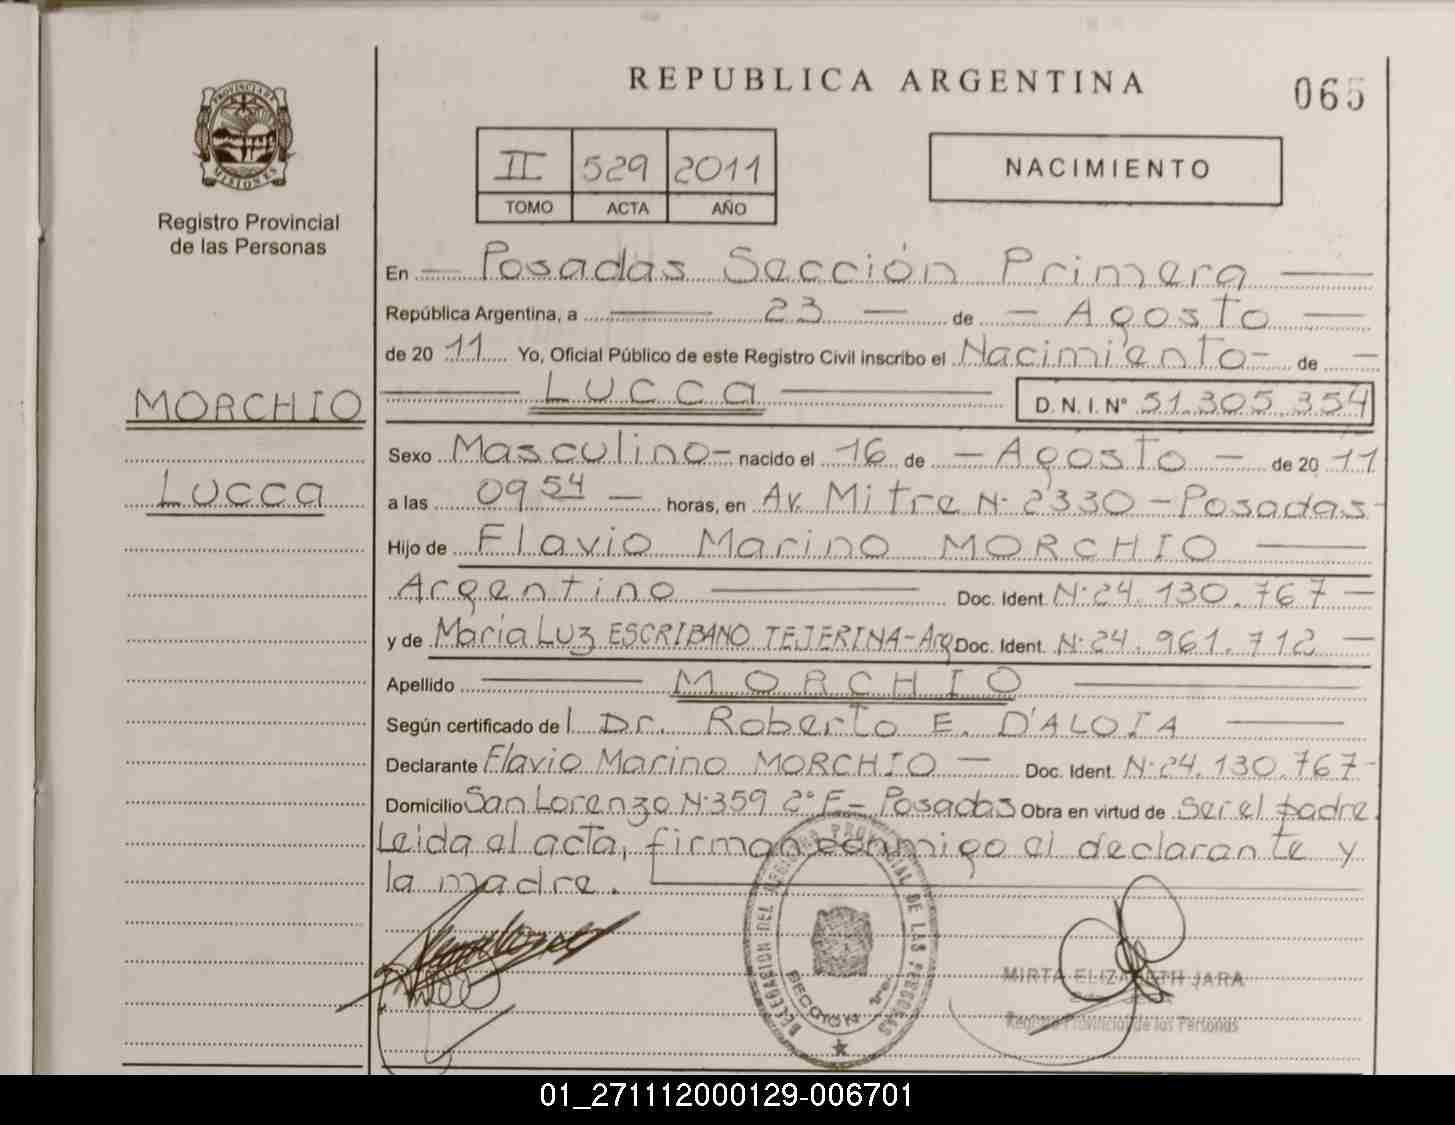 REPUBLICA ARGENTINA
065
PROVINCIA DE
MISIONES
Registro Provincial
de las Personas
II 529 2011
TOMO ACTA AÑO
NACIMIENTO
En Posadas Sección Primera
República Argentina, a 23 de Agosto
de 2011 Yo, Oficial Público de este Registro Civil inscribo el Nacimiento de
MORCHIO
Lucca
LUCCA D.N.I. Nº 51.305.354
Sexo Masculino nacido el 16 de Agosto de 2011
a las 09 54 horas, en Av. Mitre Nº 2330 - Posadas
Hijo de Flavio Marino MORCHIO
Argentino Doc. Ident. Nº 24.130.767
y de María Luz ESCRIBANO TEJERINA - Arg Doc. Ident. Nº 24.961.712
Apellido MORCHIO
Según certificado de l Dr. Roberto E. D'ALOIA
Declarante Flavio Marino MORCHIO Doc. Ident. Nº 24.130.767
Domicilio San Lorenzo Nº 359 2º F - Posadas Obra en virtud de Ser el padre
Leida el acta, firman conmigo el declarante y
la madre.
DELEGACION DEL REGISTRO PROVINCIAL DE LAS PERSONAS
SECCION 1ra.
MIRTA ELIZABETH JARA
Registro Provincial de las Personas
01_271112000129-006701